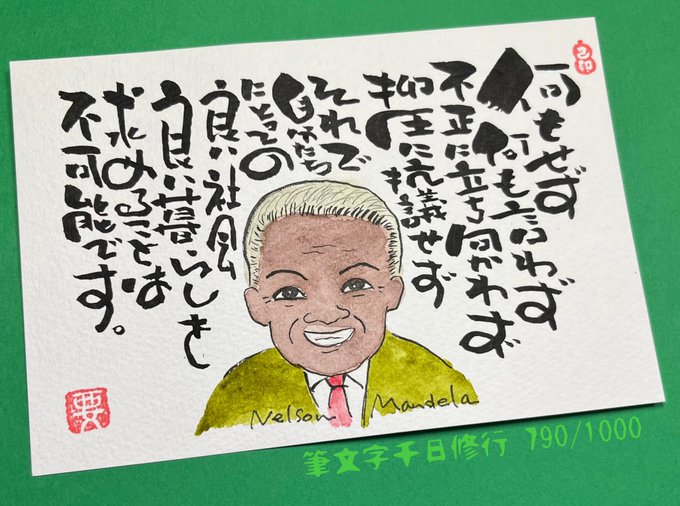 何もせず
何も言わず
不正に立ち向かわず
抑圧に抗議せず
それで
自分たち
にとっての
良い社会
良い暮らしを
求めることは
不可能です。
Nelson Mandela
要
筆文字千日修行 790/1000